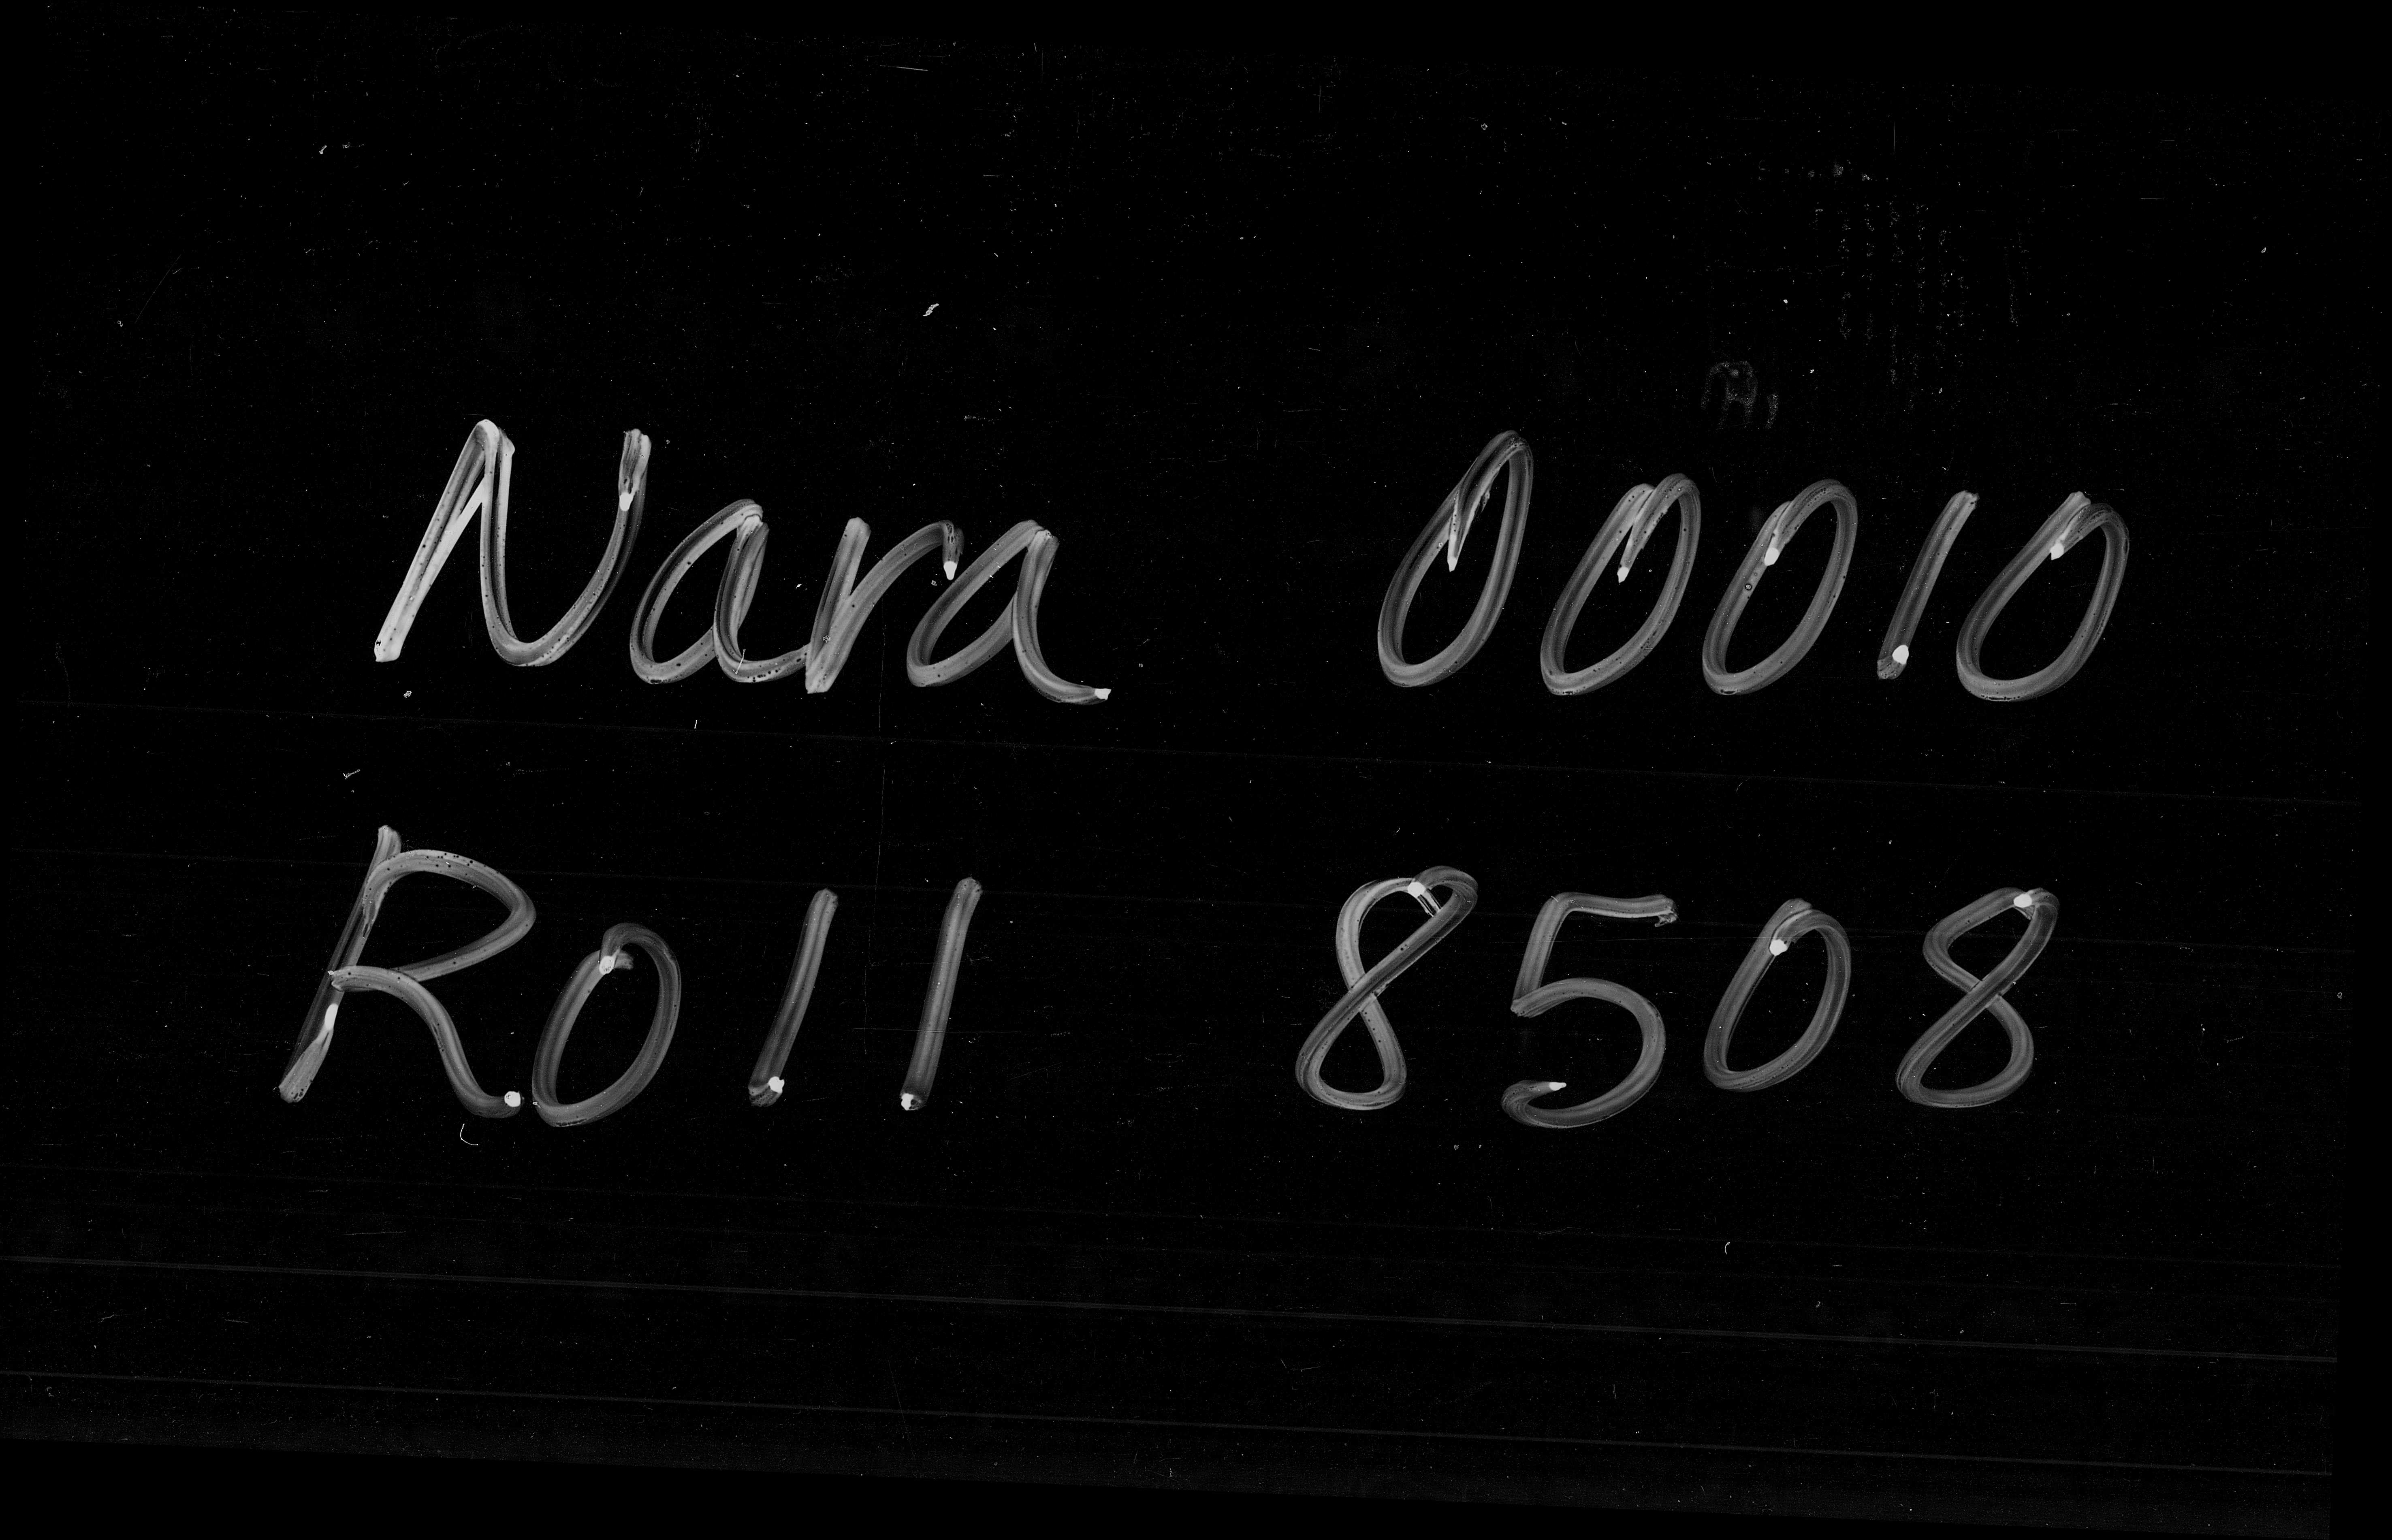 Nara 00010
Roll 8508